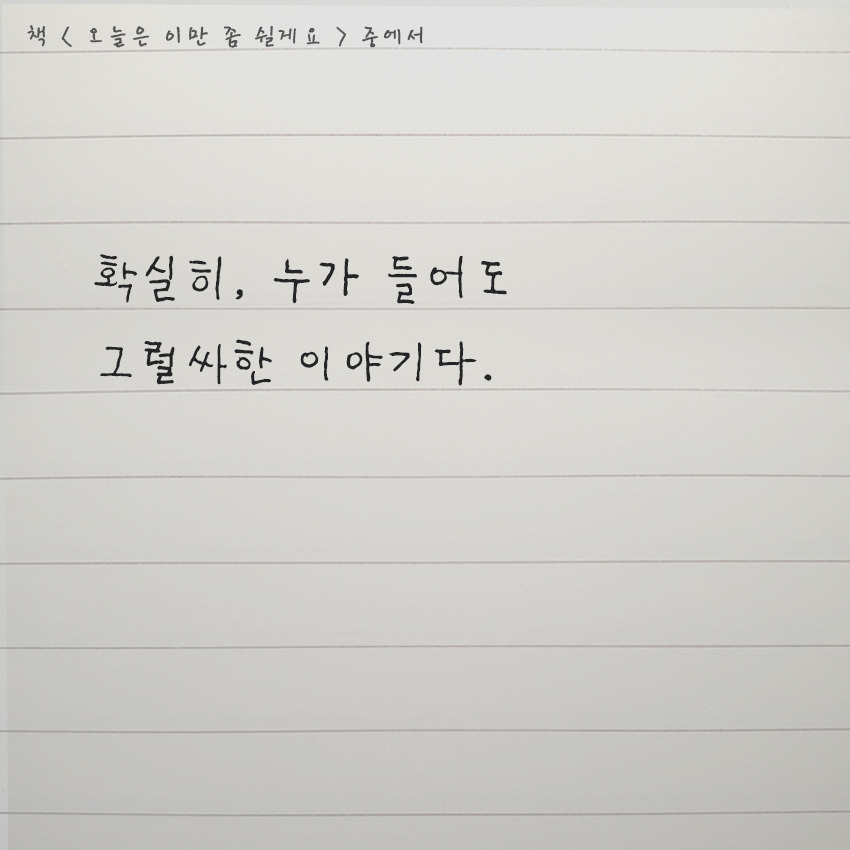 책 < 오늘은 이만 좀 쉴게요 > 중에서
확실히, 누가 들어도
그럴싸한 이야기다.